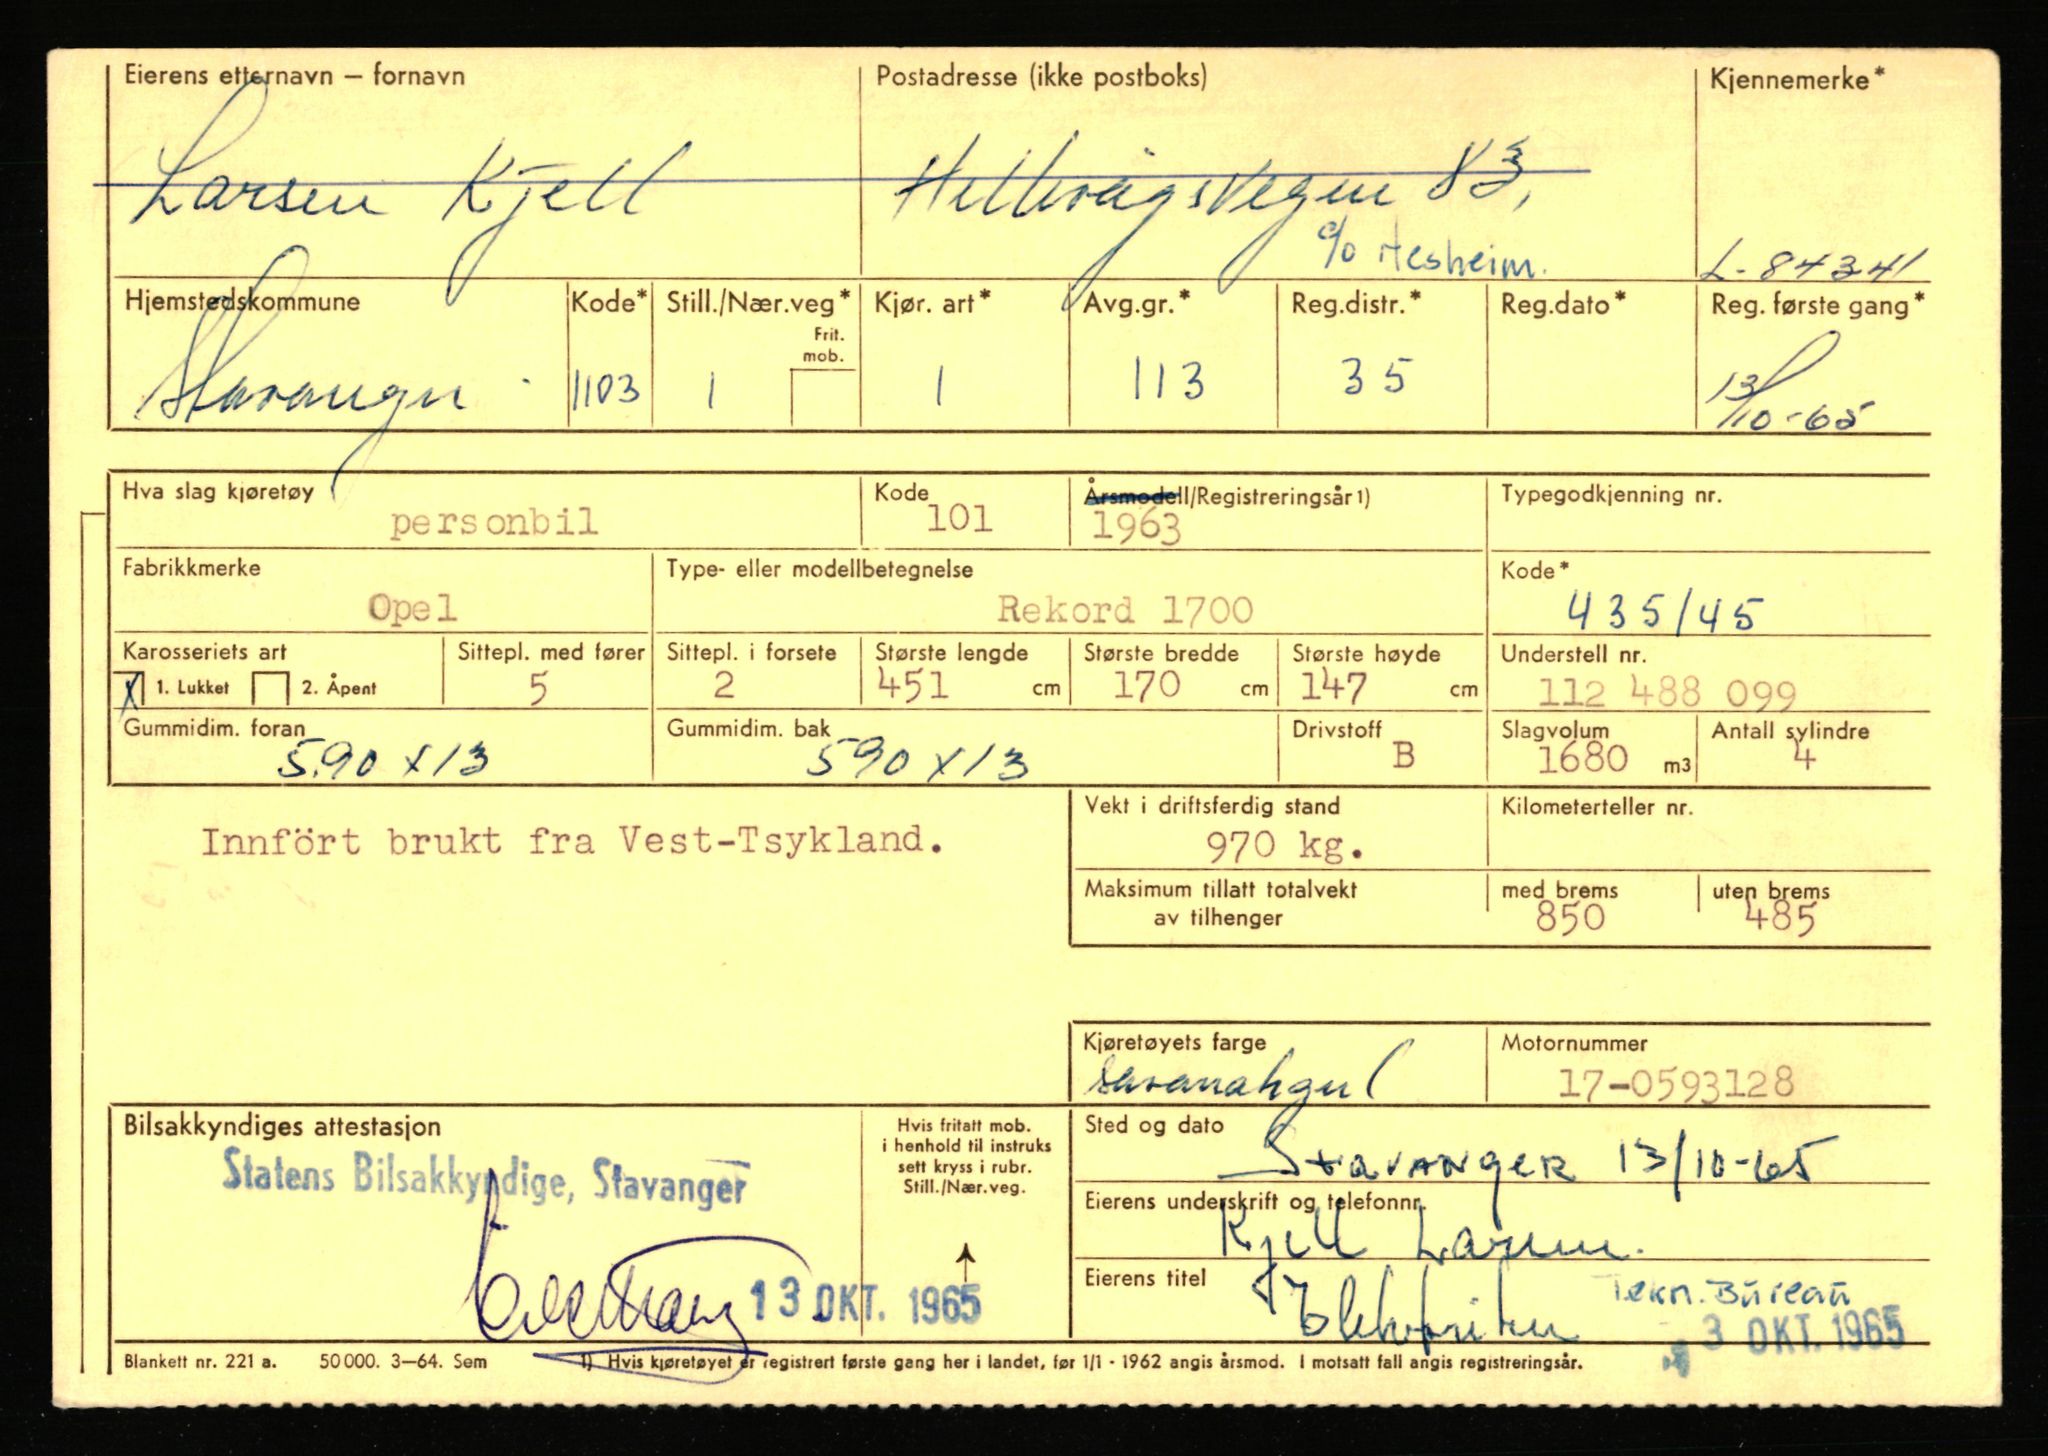 Eierens etternavn – fornavn Postadresse (ikke postboks) Kjennemerke*
Larsen Kjell Hillevågsvegen 83,
c/o Hesheim. L-84341
Hjemstedskommune Kode* Still./Nær.veg* Kjør. art* Avg.gr.* Reg.distr.* Reg.dato* Reg. første gang*
Frit. mob.
Stavanger 1103 1 1 113 35 13/10-65
Hva slag kjøretøy Kode Årsmodell/Registreringsår 1) Typegodkjenning nr.
personbil 101 1963
Fabrikkmerke Type- eller modellbetegnelse Kode*
Opel Rekord 1700 435/45
Karosseriets art Sittepl. med fører Sittepl. i forsete Største lengde Største bredde Største høyde Understell nr.
X 1. Lukket 2. Åpent 5 2 451 cm 170 cm 147 cm 112 488 099
Gummidim. foran Gummidim. bak Drivstoff Slagvolum Antall sylindre
5.90 x 13 590 x 13 B 1680 m3 4
Vekt i driftsferdig stand Kilometerteller nr.
Innfört brukt fra Vest-Tsykland. 970 kg.
Maksimum tillatt totalvekt med brems uten brems
av tilhenger 850 485
Kjøretøyets farge Motornummer
savanahgul 17-0593128
Bilsakkyndiges attestasjon Hvis fritatt mob. Sted og dato
i henhold til instruks
sett kryss i rubr.
Still./Nær.veg.
Statens Bilsakkyndige, Stavanger Stavanger 13/10-65
Eierens underskrift og telefonnr.
Kjell Larsen.
Eierens titel
Elektriker Tekn. Bureau
13 OKT. 1965 3 OKT. 1965
Blankett nr. 221 a. 50 000. 3–64. Sem 1) Hvis kjøretøyet er registrert første gang her i landet, før 1/1 - 1962 angis årsmod. I motsatt fall angis registreringsår.